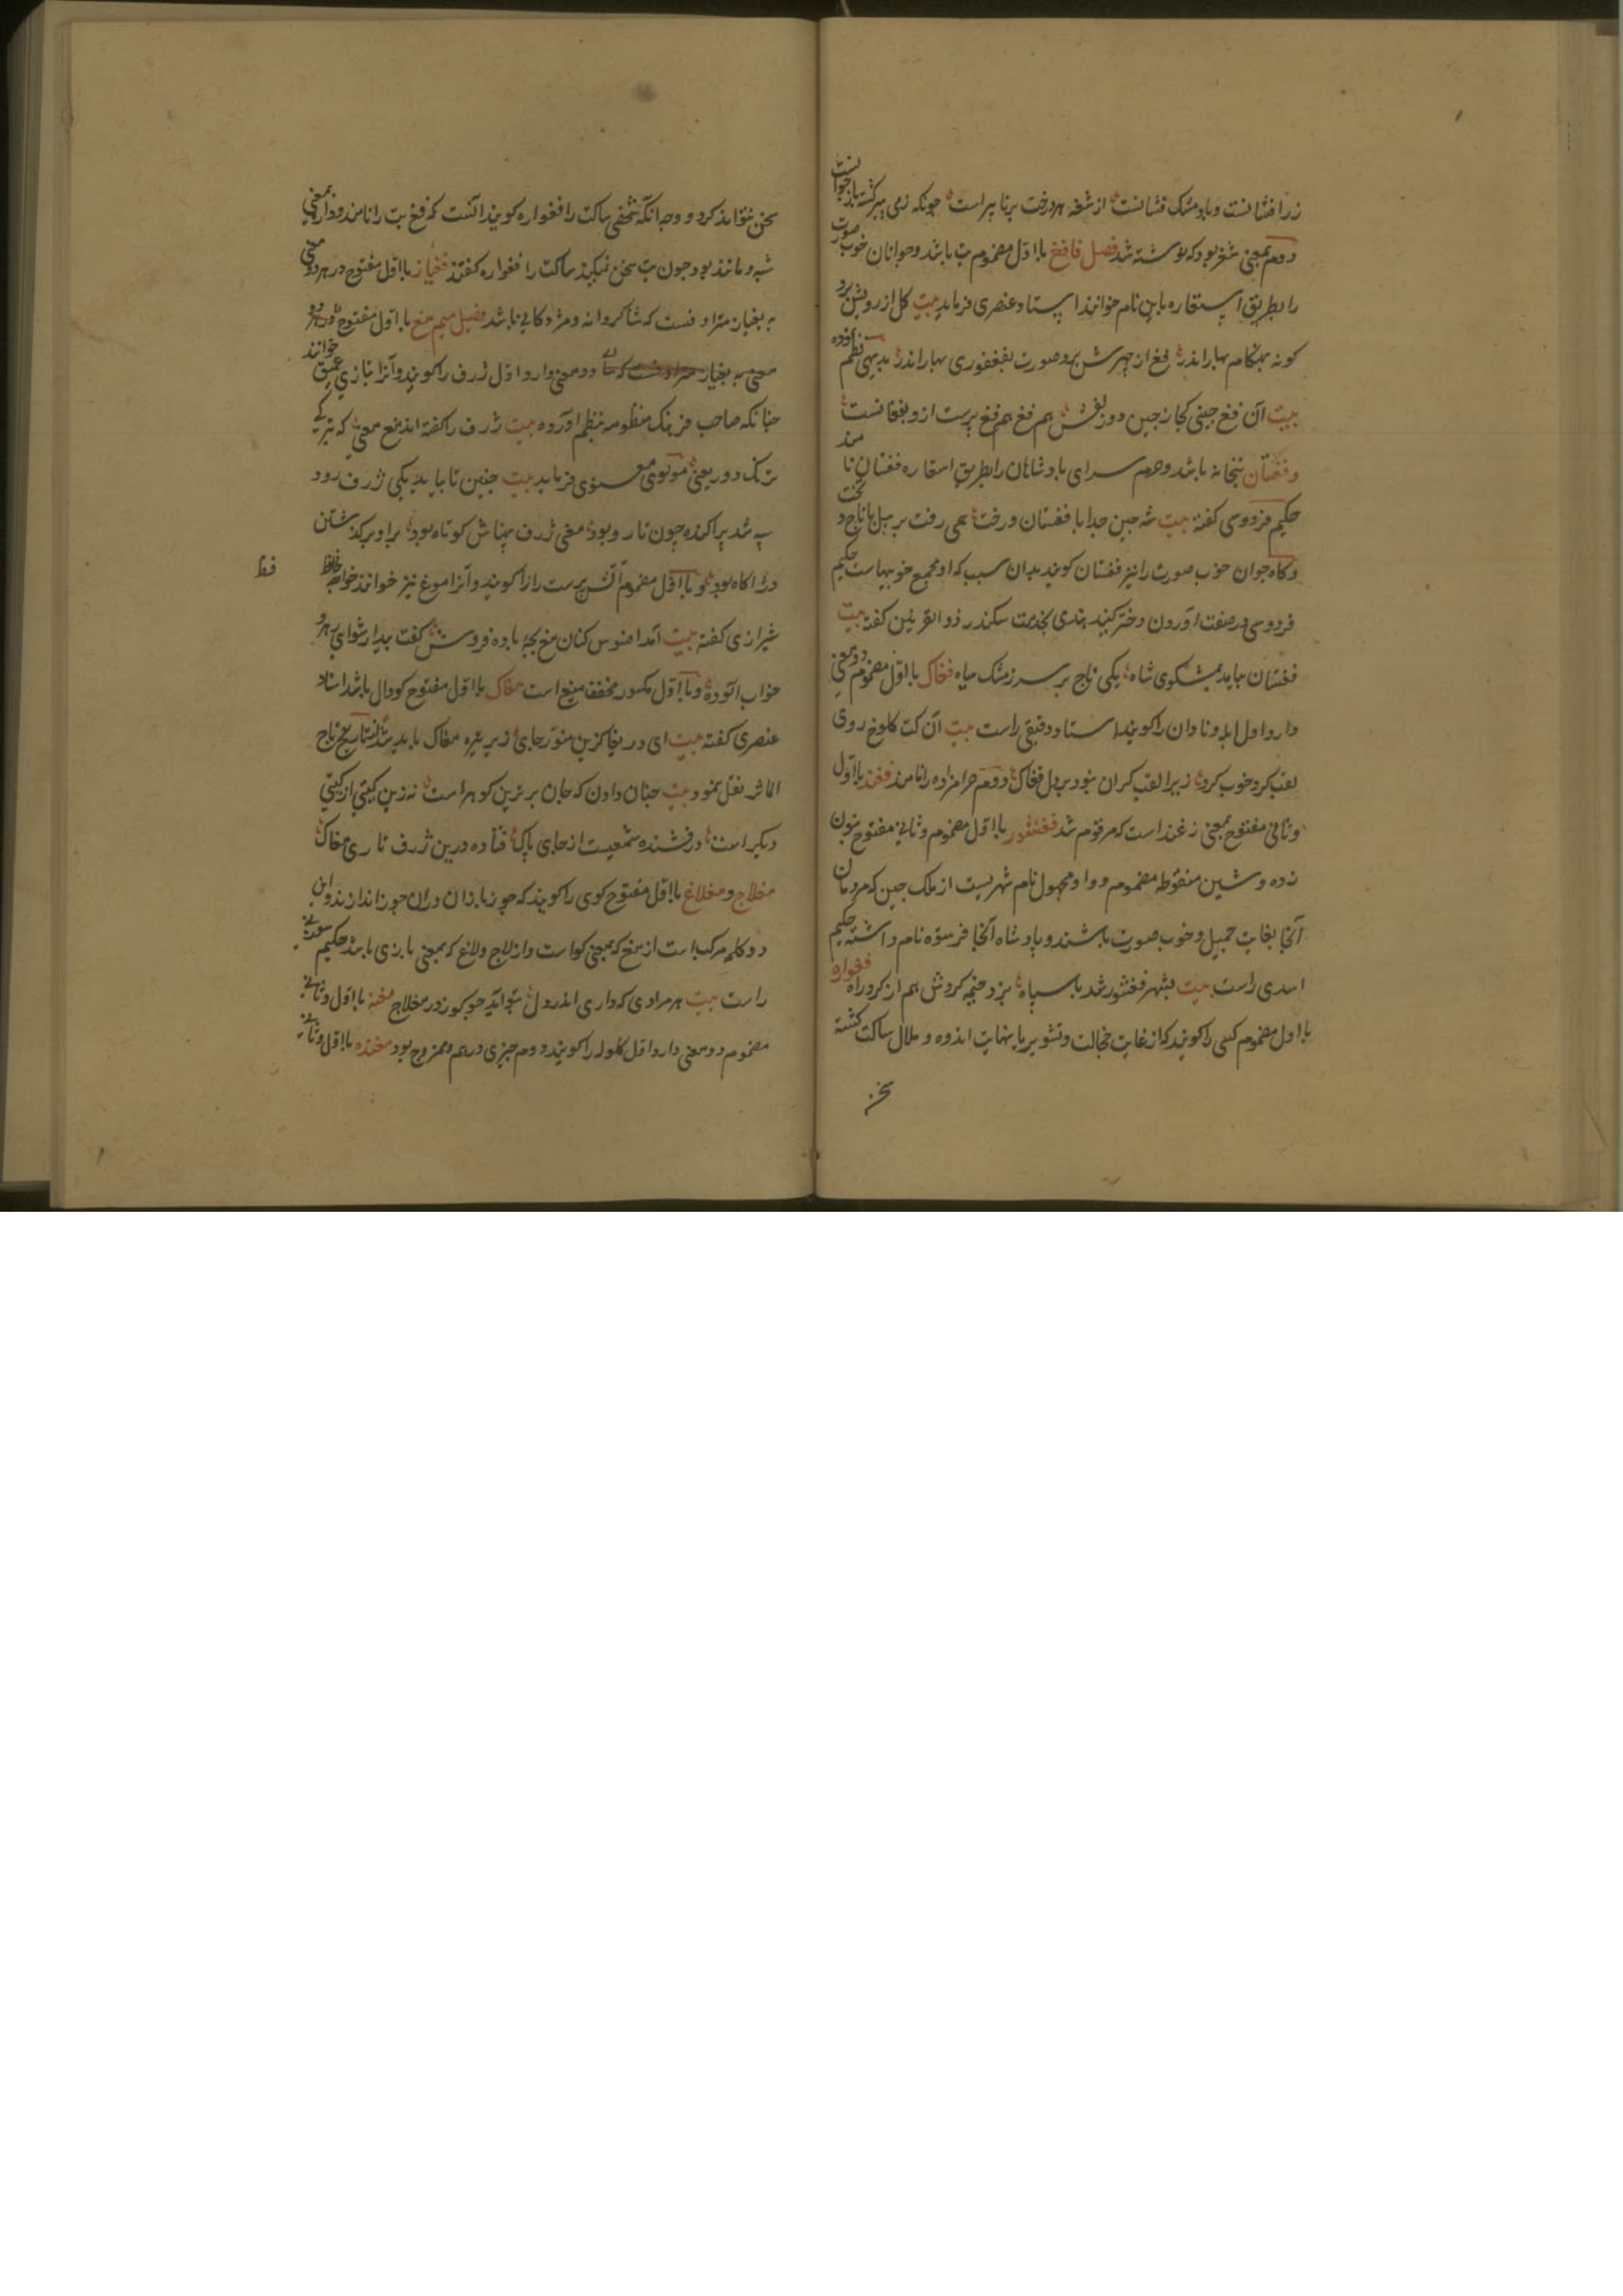 زر افشانست و باد مشک فشانست از شغه هر درخت برنا پیر است چونکه زمی پیر گشته باز جوانست
دوم بمعنی شغر بود که نوشته شد فصل فا فغ با اول مضموم بت باشد و جوانان خوب صورت
را بطریق استعاره باین نام خوانند استاد عنصری فرماید بیت کل از رویش برد
کونه بهنکام بهار اندر فغ از چهرش برد صورت بفغفوری بهار اندر بدیهی نظم نموده
بیت آن فغ چینی کجا ز چین دو زلفش هم فغ هم فغ پرست ازو بفغانست
و فغستان بتخانه باشد و حرم سرای بادشاهان را بطریق استعاره فغستان نامند
حکیم فردوسی کفته بیت شه چین جدا با فغستان و رخت همی رفت بر پیل با تاج و تخت
و کاه جوان خوب صورت را نیز فغستان کویند بدان سبب که او مجمع خوبیهاست حکیم
فردوسی در صفت آوردن دختر کید هندی بخدمت سکندر ذوالقرنین کفته بیت
فغستان بیامد بمشکوی شاه یکی تاج بر سر ز مشک سیاه فغاک با اول مضموم دو معنی
دارد اول ابله و نادان را کویند استاد دقیقی راست بیت آن کت کلوخ روی
لقب کرد خوب کرد زیرا لقب کران نبود بر دل فغاک دوم حرامزاده را نامند فغند با اول
و ثانی مفتوح بمعنی زغند است که مرقوم شد فغنشور با اول مضموم و ثانی مفتوح بنون
زده و شین منقوطه مضموم و واو مجهول نام شهریست از ملک چین که مردمان
آنجا بغایت جمیل و خوب صورت باشند و بادشاه آنجا فرسوه نام داشته حکیم
اسدی راست بیت بشهر فغنشور شد با سپاه بزد خیمه کردش هم از کرد راه فغواره
با اول مضموم کسی را کویند که از غایت خجالت و تشویر یا بنهایت اندوه و ملال ساکت کشته
سخن
سخن نتواند کرد و وجه آنکه شخصی ساکت را فغواره کویند آنست که فغ بت را نامند و واره بمعنی
شبه و مانند بود چون بت سخن نمیکند ساکت را فغواره کفتند فغیاز با اول مفتوح در هر دو معنی
به بغیاز مترادفست که شاکردانه و مژدکانی باشد فصل میم مغ با اول مفتوح
دو معنی دارد اول ژرف را کویند و آنرا بتازی عمیق خوانند
چنانکه صاحب فرهنک منظومه بنظم آورده بیت ژرف را کفته اند مغ معنی که بترکی
مولوی معنوی فرماید بیت چنین تا بیامد یکی ژرف رود
سپه شد پراکنده چون تار و پود مغی ژرف پهناش کوتاه بود برو بر کذشتن
دژ آکاه بود و با اول مضموم آتش پرست را کویند و آنرا موغ نیز خوانند خواجه حافظ
شیرازی کفته بیت آمد افسوس کنان مغبچهٔ باده فروش کفت بیدار شو ای رهرو
خواب آلوده و با اول مکسور مخفف میغ است مغاک با اول مفتوح کودال باشد استاد
عنصری کفته بیت ای دریغا کزین منور جای زیر تیره مغاک باید شد
المآثر نقل نمود بیت چنان دان که جان برترین کوهر است نه زین کیتی از کیتی
دیکر است درفشنده شمعیست از جای پاک فتاده درین ژرف تاری مغاک
مغلاج و مغلاغ با اول مفتوح کوی را کویند که جوزبازان دران جوز اندازند و این
دو کلمه مرکب است از مغ که بمعنی کو است و از لاج و لاغ که بمعنی بازی باشد حکیم سوزنی
راست بیت هر مرادی که داری اندر دل بتو آید چو کوز در مغلاج مغنه با اول و ثانی
مضموم دو معنی دارد اول کلوله را کویند دوم چیزی درهم و ممزوج بود مغنده با اول و ثانی